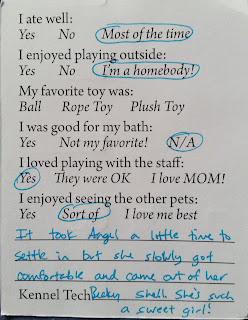 I ate well:
Yes No Most of the time
I enjoyed playing outside:
Yes No I'm a homebody!
My favorite toy was:
Ball Rope Toy Plush Toy
I was good for my bath:
Yes Not my favorite! N/A
I loved playing with the staff:
Yes They were OK I love MOM!
I enjoyed seeing the other pets:
Yes Sort of I love me best
It took Angel a little time to
settle in but she slowly got
comfortable and came out of her
Kennel Tech Becky shell. She's such
a sweet girl!